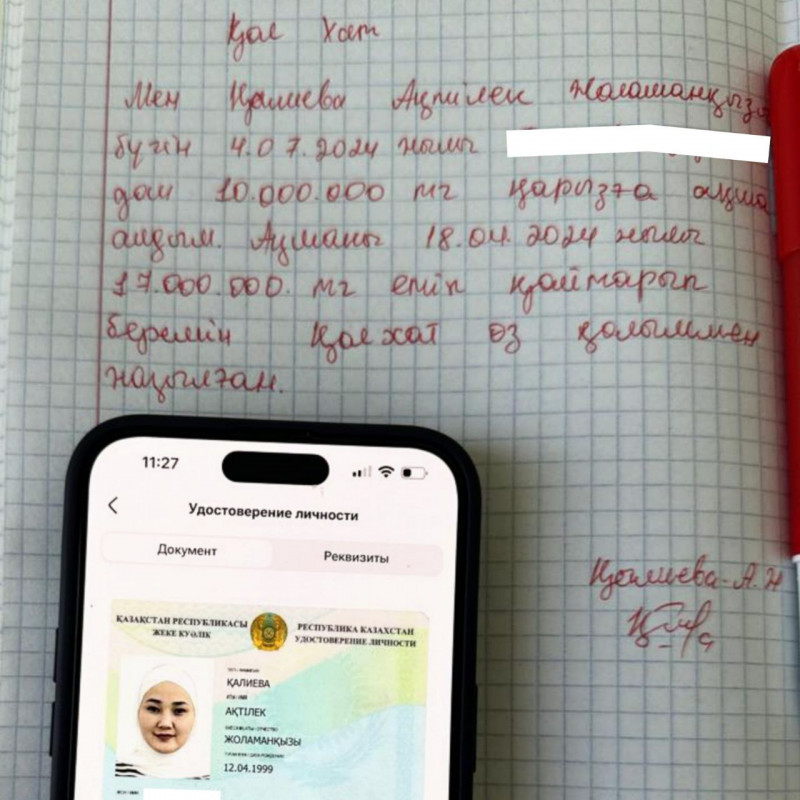 Қол Хат
Мен Қалиева Ақтілек Жоламанқызы
бүгін 4.07.2024 жылы
дан 10.000.000 тг қарызға ақша
алдым. Ақшаны 18.04.2024 жылы
17.000.000. тг етіп қайтарып
беремін Қолхат өз қолыммен
жазылған.
Қалиева А.Ж
11:27
Удостоверение личности
Документ
Реквизиты
ҚАЗАҚСТАН РЕСПУБЛИКАСЫ
ЖЕКЕ КУӘЛІК
РЕСПУБЛИКА КАЗАХСТАН
УДОСТОВЕРЕНИЕ ЛИЧНОСТИ
ҚАЛИЕВА
АҚТІЛЕК
ЖОЛАМАНҚЫЗЫ
12.04.1999